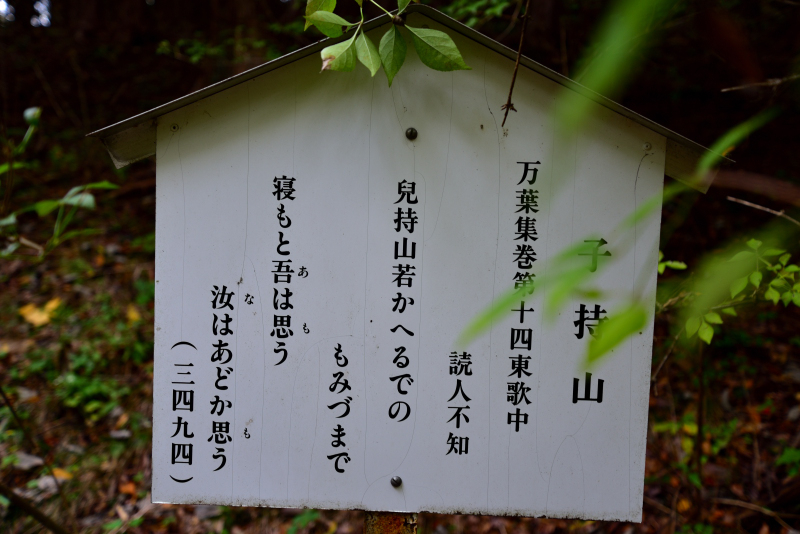 子持山
万葉集巻第十四東歌中
読人不知
兒持山若かへるでの
もみづまで
寝もと吾は思う
あ も
汝はあどか思う
な も
（三四九四）